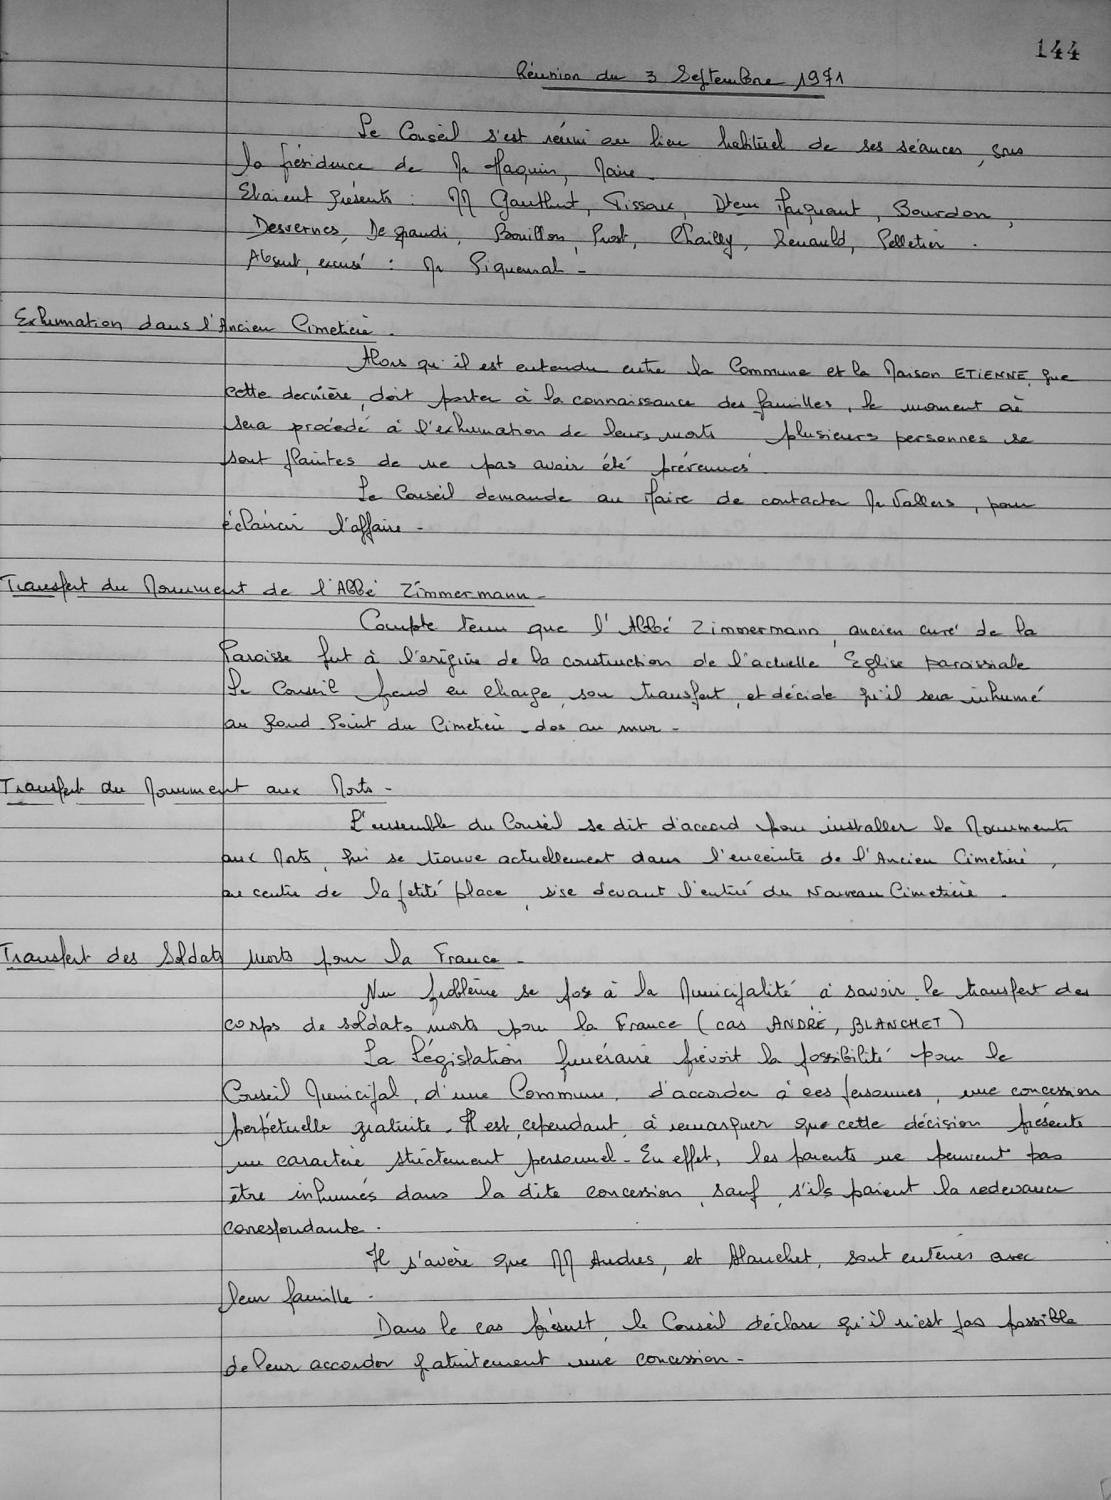 144
Réunion du 3 Septembre 1971
Le Conseil s'est réuni au lieu habituel de ses séances, sous
la présidence de Mr Maquin, Maire.
Etaient présents : MM Gauthut, Tissoux, Bourdon,
Desvernes, De grandi, Bouillon, Prost, Chailly, Renauld, Pelletier.
Absent, excusé : Mr Piquemal -
Exhumation dans l'Ancien Cimetière.
Alors qu'il est entendu entre la Commune et la Maison ETIENNE, que
cette dernière, doit porter à la connaissance des familles, le moment où
sera procédé à l'exhumation de leurs morts plusieurs personnes se
sont plaintes de ne pas avoir été prévenues.
Le Conseil demande au Maire de contacter Mr Vallers, pour
éclaircir l'affaire -
Transfert du Monument de l'Abbé Zimmermann -
Compte tenu que l'Abbé Zimmermann, ancien curé de la
Paroisse fut à l'origine de la construction de l'actuelle Eglise paroissiale
Le Conseil prend en charge, son transfert, et décide qu'il sera inhumé
au Rond Point du Cimetière - dos au mur -
Transfert du Monument aux Morts -
L'ensemble du Conseil se dit d'accord pour installer le Monuments
aux Morts, qui se trouve actuellement dans l'enceinte de l'Ancien Cimetière,
au centre de la petite place, sise devant l'entrée du Nouveau Cimetière.
Transfert des Soldats morts pour la France -
Un problème se pose à la Municipalité à savoir, le transfert des
corps de soldats morts pour la France (cas ANDRÉ, BLANCHET)
La Législation funéraire prévoit la possibilité pour le
Conseil Municipal, d'une Commune, d'accorder à ces personnes, une concession
perpétuelle gratuite. Il est, cependant, à remarquer que cette décision présente
un caractère strictement personnel - En effet, les parents ne peuvent pas
être inhumés dans la dite concession, sauf, s'ils paient la redevance
correspondante.
Il s'avère que MM Andres, et Blanchet, sont enterrés avec
leur famille.
Dans le cas présent, le Conseil déclare qu'il n'est pas possible
de leur accorder gratuitement une concession -